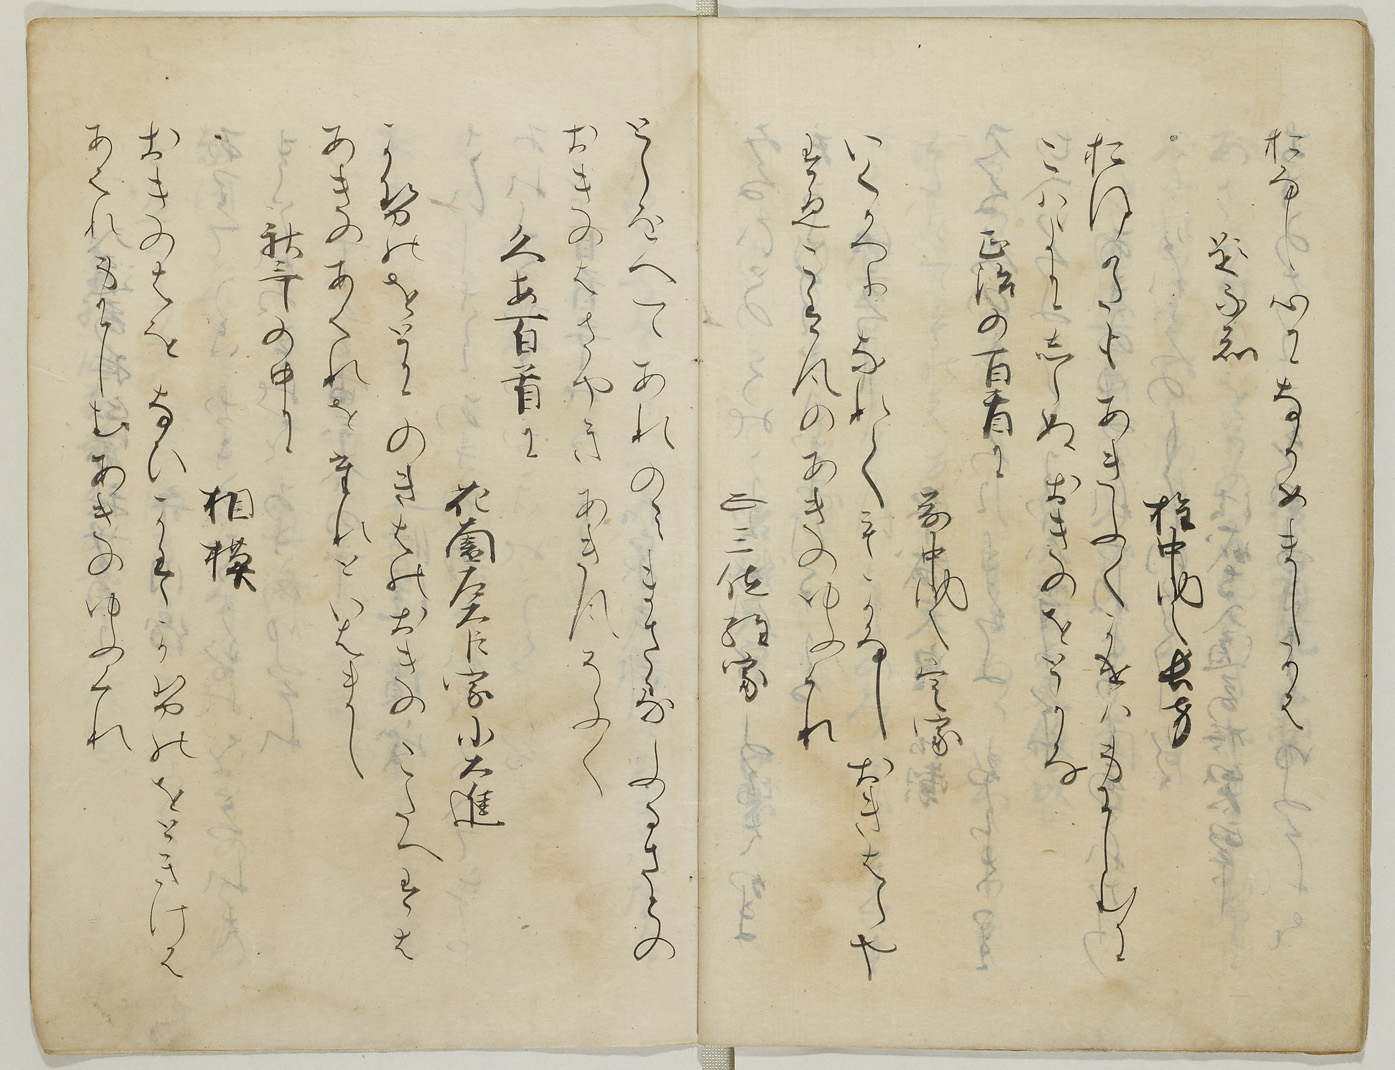 おなし心になかめましかは
題不知
権中納言長方
おほかたもあき ものかなしきに
こはよにしらぬおきのをとかな
正治の百首に
前中納言定家
いくかへりなれてもかなしおきはらや
すゑこす風のあきのゆふくれ
正三位経家
としをへてあれのみまさるふるさとの
おきのはさやきあき風そふく
久安百首に
花園左大臣家小大進
かせのをとにのきはのおきのこたへすは
あきのあはれをたれといはまし
秋哥の中に
相模
おきのはをなひかすかせのをときけは
あはれ身にしむあきのゆふくれ